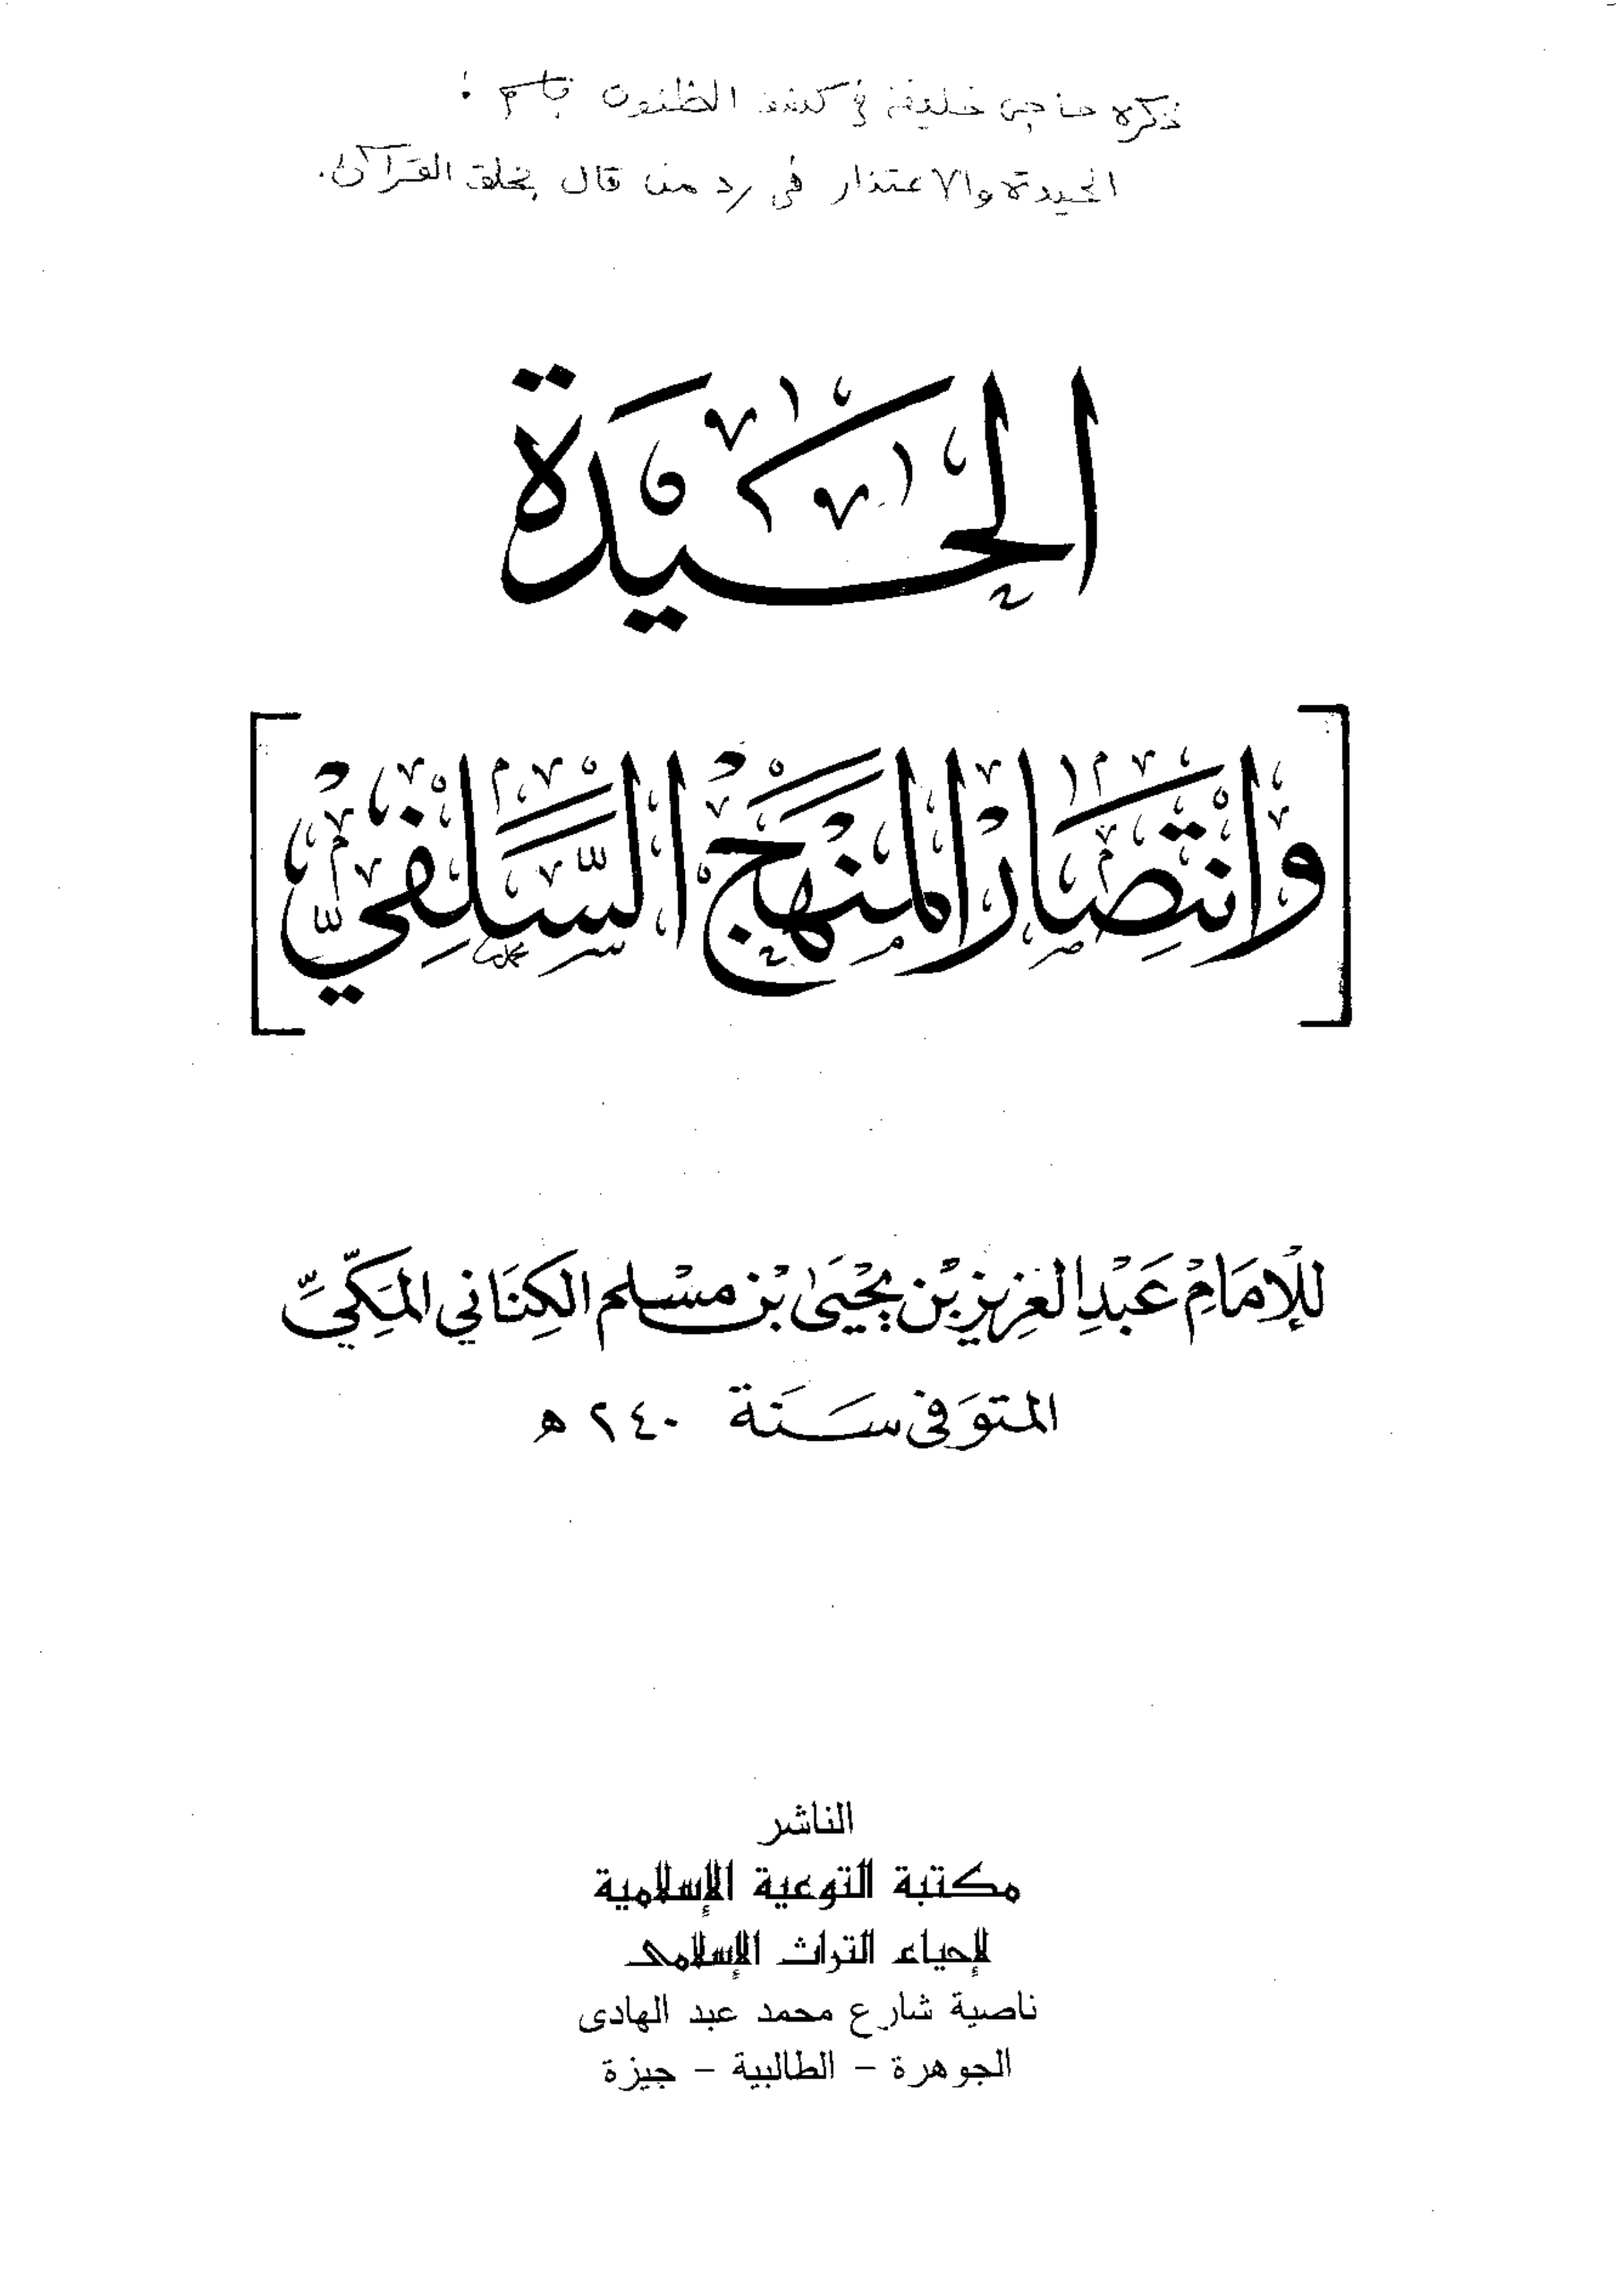 ذكره حاجي خليفة في كشف الظنون باسم :
الحيدة والاعتذار في رد من قال بخلق القرآن.
الحَيْدَة
[وَانتِصَارُ المَنهَج السَّلَفِيّ]
لِلإمَامْ عَبْدِ العَزِيز بْن يَحْيَىٰ بْن مسْلم الكِنَاني المَكِّيّ
المتوَفى سَنَة ٢٤٠ هـ
الناشر
مكتبة التوعية الإسلامية
لإحياء التراث الإسلامى
ناصية شارع محمد عبد الهادى
الجوهرة – الطالبية – جيزة